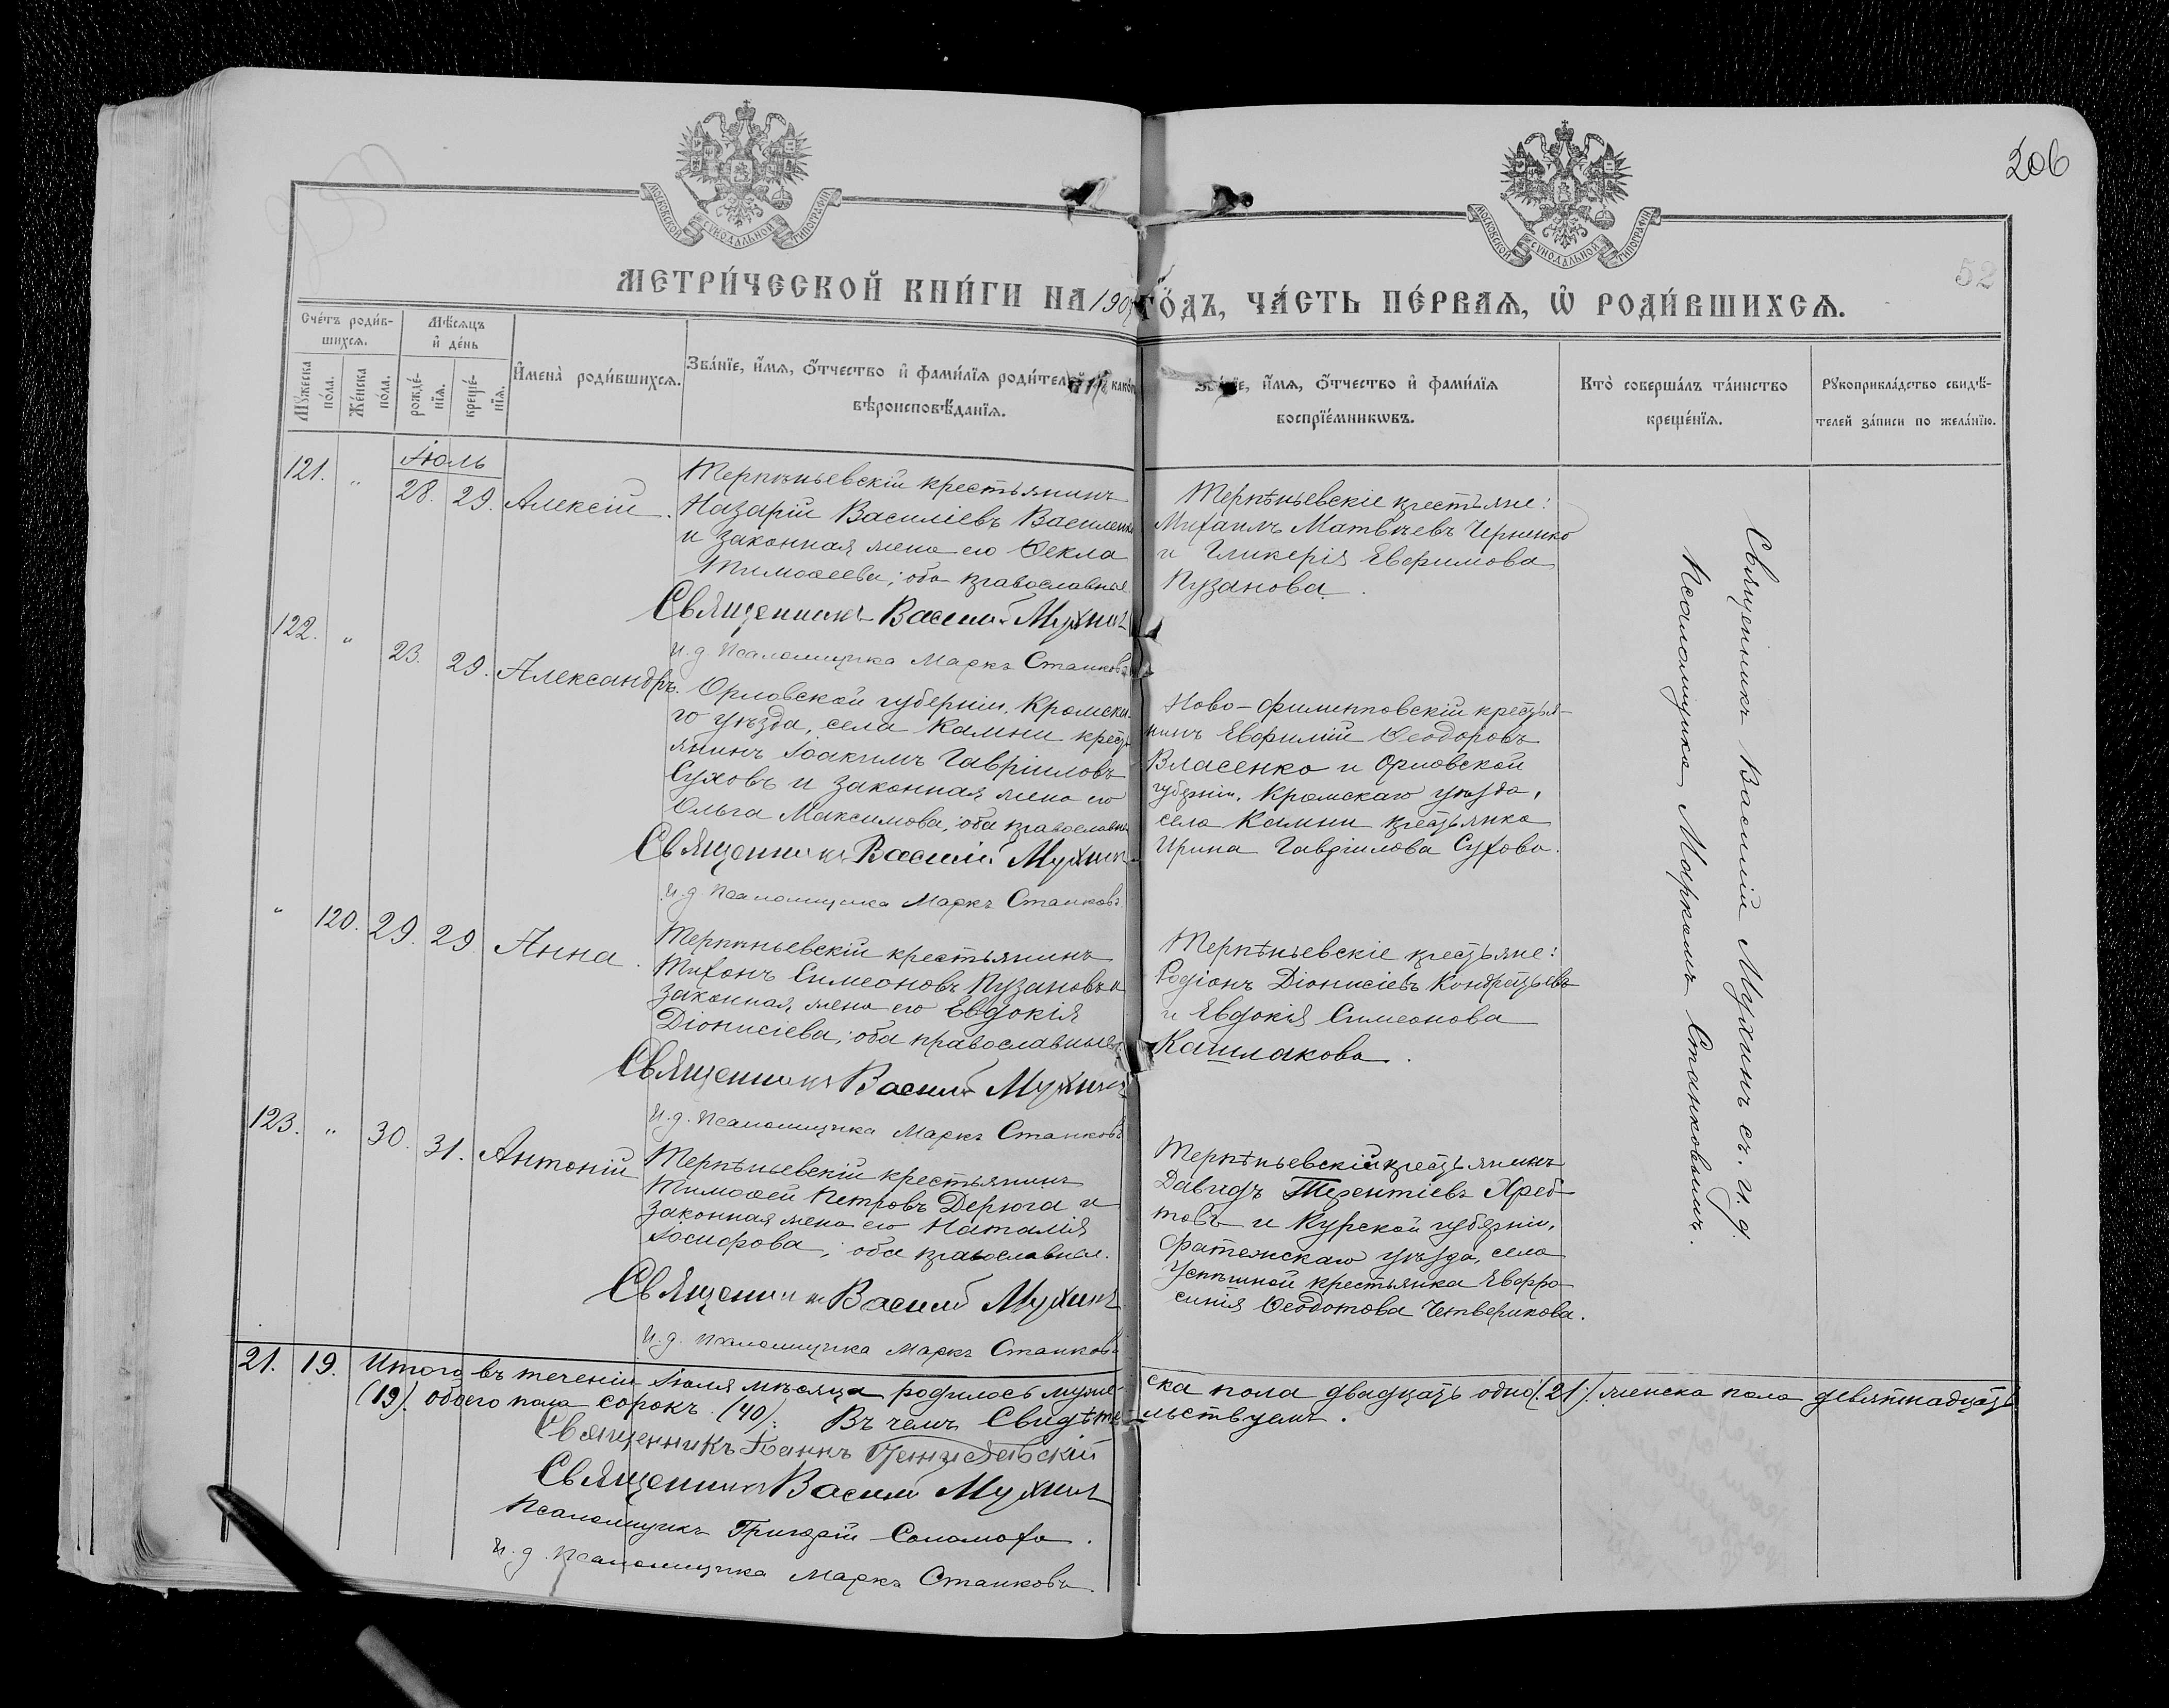 206
52
МОСКОВСКОЙ СѴНОДАЛЬНОЙ ТИПОГРАФІИ
МОСКОВСКОЙ СѴНОДАЛЬНОЙ ТИПОГРАФІИ
МЕТРИ́ЧЕСКОЙ КНИ́ГИ НА 1907 ГО́ДЪ, ЧА́СТЬ ПЕ́РВАѦ, Ѡ҆ РОДИ́ВШИХСѦ.
Сче́тъ роди́в-
шихсѧ.
Мѣ́сѧцъ
и҆ де́нь
Мꙋ́жеска
по́ла.
Же́нска
по́ла.
рожде́-
нїѧ.
креще́-
нїѧ.
И҆мена̀ роди́вшихсѧ.
Зва́нїе, и҆́мѧ, ѻ҆́тчество и҆ фами́лїѧ роди́телей, и҆ како́гѡ
вѣроисповѣ́данїѧ.
Зва́нїе, и҆́мѧ, ѻ҆́тчество и҆ фами́лїѧ
воспрїе́мникѡвъ.
Кто̀ соверша́лъ та́инство
креще́нїѧ.
Рꙋкоприкла́дство свидѣ́-
телей за́писи по жела́нїю.
Іюль
121. " 28. 29. Алексій.
Терпѣньевскій крестьянинъ
Назарій Василіевъ Василенко
и законная жена его Ѳекла
Тимоѳеева; оба православные
Священникъ Василій Мухинъ
И. д. Псаломщика Маркъ Станковъ
Терпѣньевскіе крестьяне:
Михаилъ Матвѣевъ Черненко
и Гликерія Евфимова
Пузанова.
122. " 23. 29. Александръ.
Орловской губерніи, Кромска-
го уѣзда, села Камни кресть-
янинъ Іоакимъ Гавріиловъ
Суховъ и законная жена его
Ольга Максимова; оба православные
Священникъ Василій Мухинъ
И. д. Псаломщика Маркъ Станковъ.
Ново-Филипповскій крестья-
нинъ Евфимій Ѳеодоровъ
Власенко и Орловской
губерніи, Кромскаго уѣзда,
села Камни крестьянка
Ирина Гавріилова Сухова.
" 120. 29. 29 Анна.
Терпѣньевскій крестьянинъ
Тихонъ Симеоновъ Пузановъ и
законная жена его Евдокія
Діонисіева; оба православные
Священникъ Василій Мухинъ
И. д. Псаломщика Маркъ Станковъ
Терпѣньевскіе крестьяне:
Родіонъ Діонисіевъ Кондратьевъ
и Евдокія Симеонова
Кашлакова.
123. " 30. 31. Антоній
Терпѣньевскій крестьянинъ
Тимоѳей Петровъ Дерюга и
законная жена его Наталія
Іосифова; оба православные.
Священникъ Василій Мухинъ
И. д. Псаломщика Маркъ Станковъ
Терпѣньевскій крестьянинъ
Давидъ Терентіевъ Хреб-
товъ и Курской губерніи,
Фатежскаго уѣзда, села
Успѣшной крестьянка Евфро-
синія Ѳеодотова Четверикова.
Священникъ Василій Мухинъ съ и. д.
Псаломщика Маркомъ Станковымъ.
21. 19. Итого въ теченіи Іюля мѣсяца родилось муже-ска пола двадцать одно (21) женска пола девятнадцать
(19). обоего пола сорокъ (40). Въ чемъ Свидѣте-льствуемъ.
Священникъ Іоаннъ
Священникъ Василій Мухинъ
Псаломщикъ Григорій Соломаха.
И. д. Псаломщика Маркъ Станковъ.